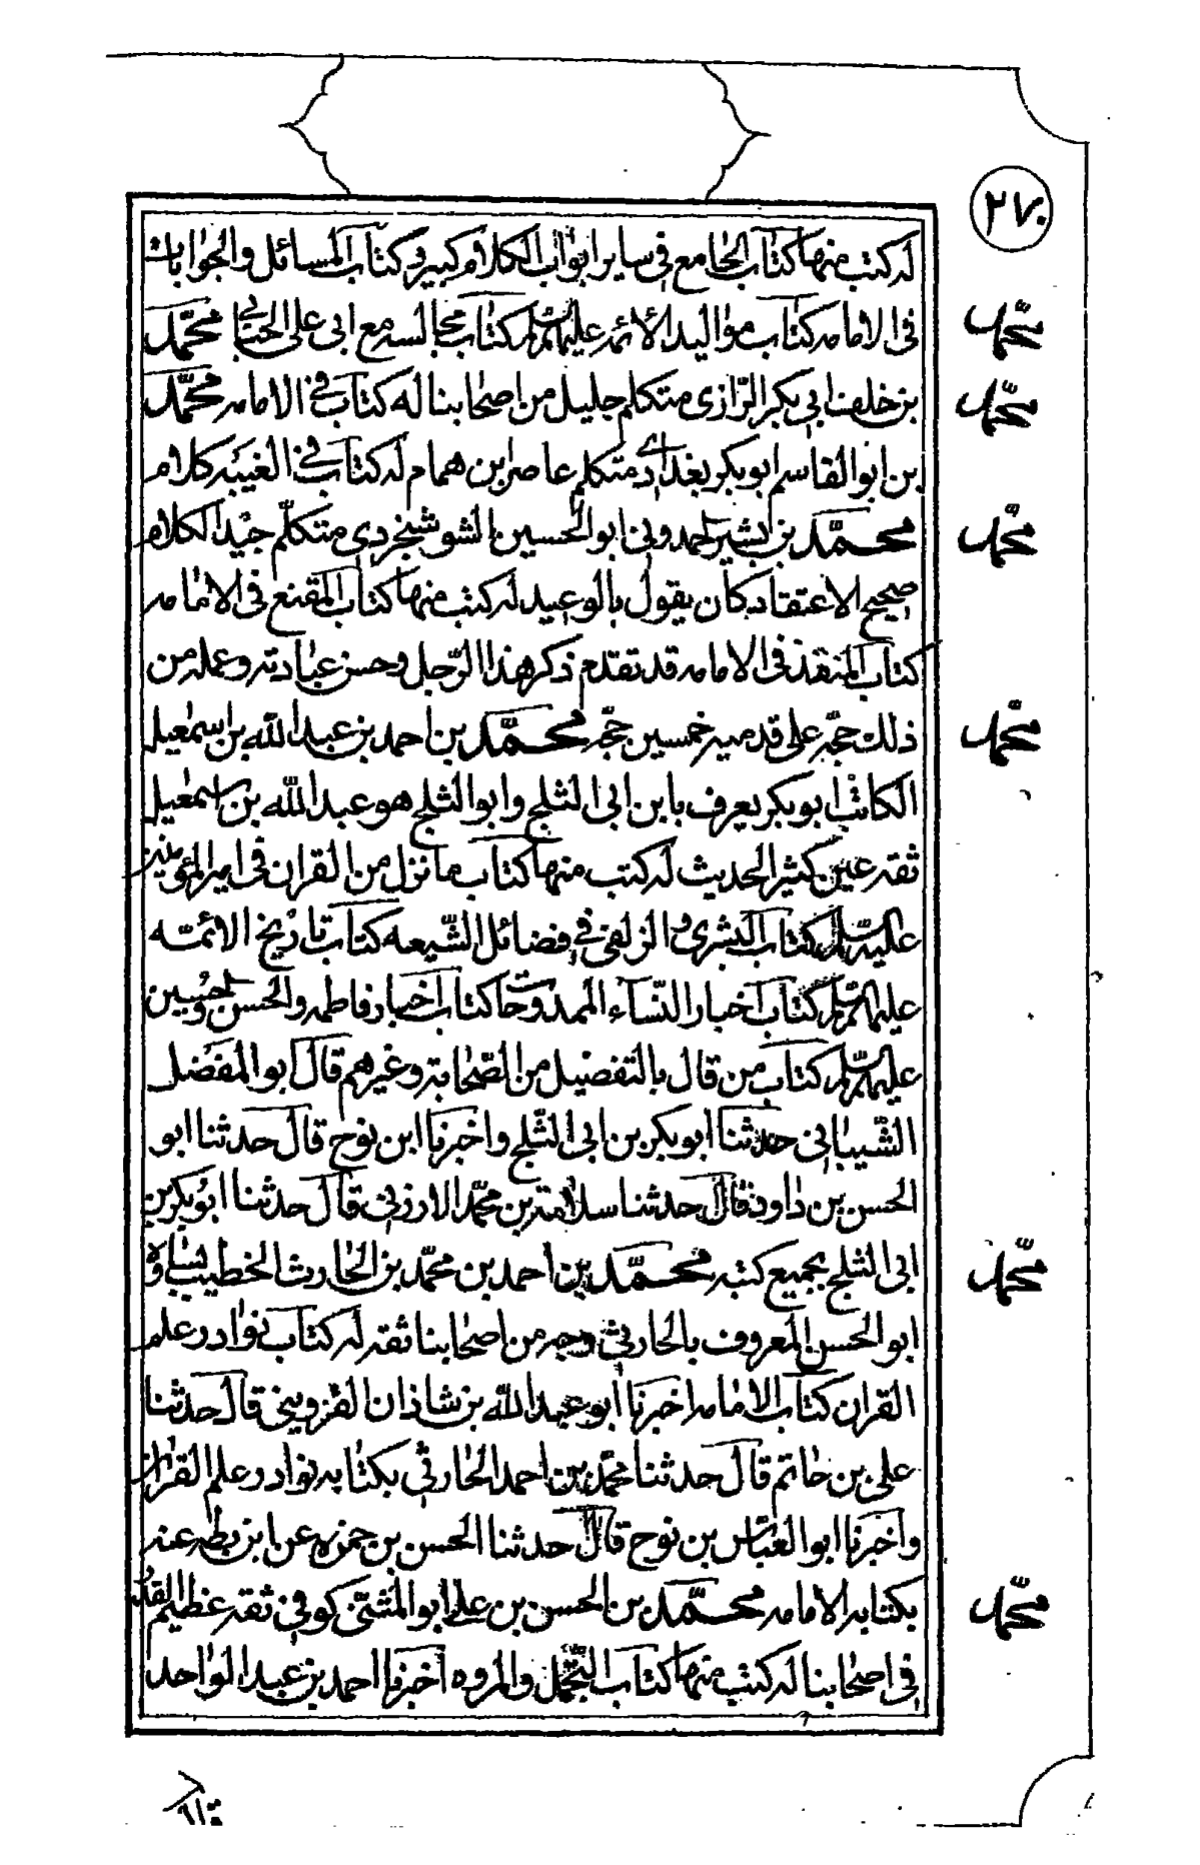 ٢٧٠
له كتب منها كتاب الجامع في ساير ابواب الكلام كبير وكتاب المسائل والجوابات
في الامامه كتاب مواليد الأئمه عليهم السلم كتاب مجالسه مع ابى على الجبائي محمّد
محمّد
بن خلف ابي بكر الرّازى متكلم جليل من اصحابنا له كتاب في الامامه محمّد
محمّد
بن ابو القاسم ابو بكر بغدادي متكلم عاصر ابن همام له كتاب في الغيبه كلام
محمّد بن بشير الحمدوني ابو الحسين السوشنجردي متكلّم جيّد الكلام
محمّد
صحيح الاعتقاد كان يقول بالوعيد له كتب منها كتاب المقنع في الامامه
كتاب المنقذ في الامامه قد تقدم ذكر هذا الرّجل وحسن عبادته وعمله من
ذلك حجّه على قدميه خمسين حجّه محمّد بن احمد بن عبد الله بن اسمعيل
محمّد
الكاتب ابو بكر يعرف بابن ابى الثلج وابو الثلج هو عبد الله بن اسمعيل
ثقه عين كثير الحديث له كتب منها كتاب ما نزل من القران في امير المؤمنين
عليه السّلم كتاب البشرى والزلفى في فضائل الشّيعه كتاب تاريخ الائمّه
عليهم السّلم كتاب اخبار النّساء الممدوحات كتاب اخبار فاطمه والحسن والحسين
عليهم السّلم كتاب من قال بالتفضيل من الصّحابة وغيرهم قال ابو المفضل
الشّيباني حدثنا ابو بكر بن ابى الثّلج واخبرنا ابن نوح قال حدثنا ابو
الحسن بن داود قال حدثنا سلامة بن محمّد الارزني قال حدثنا ابو بكر بن
ابى الثلج بجميع كتبه محمّد بن احمد بن محمّد بن الحارث الخطيب بساوه
محمّد
ابو الحسن المعروف بالحارثي وجه من اصحابنا ثقه له كتاب نوادر علم
القران كتاب الامامه اخبرنا ابو عبد الله بن شاذان القزويني قال حدثنا
على بن حاتم قال حدثنا محمّد بن احمد الحارثي بكتابه نوادر علم القران
واخبرنا ابو العبّاس بن نوح قال حدثنا الحسن بن حمزه عن ابن بطه عنه
بكتابه الامامه محمّد بن الحسن بن علي ابو المثنّى كوفي ثقه عظيم القدر
محمّد
في اصحابنا له كتب منها كتاب التّجمّل والمروه اخبرنا احمد بن عبد الواحد